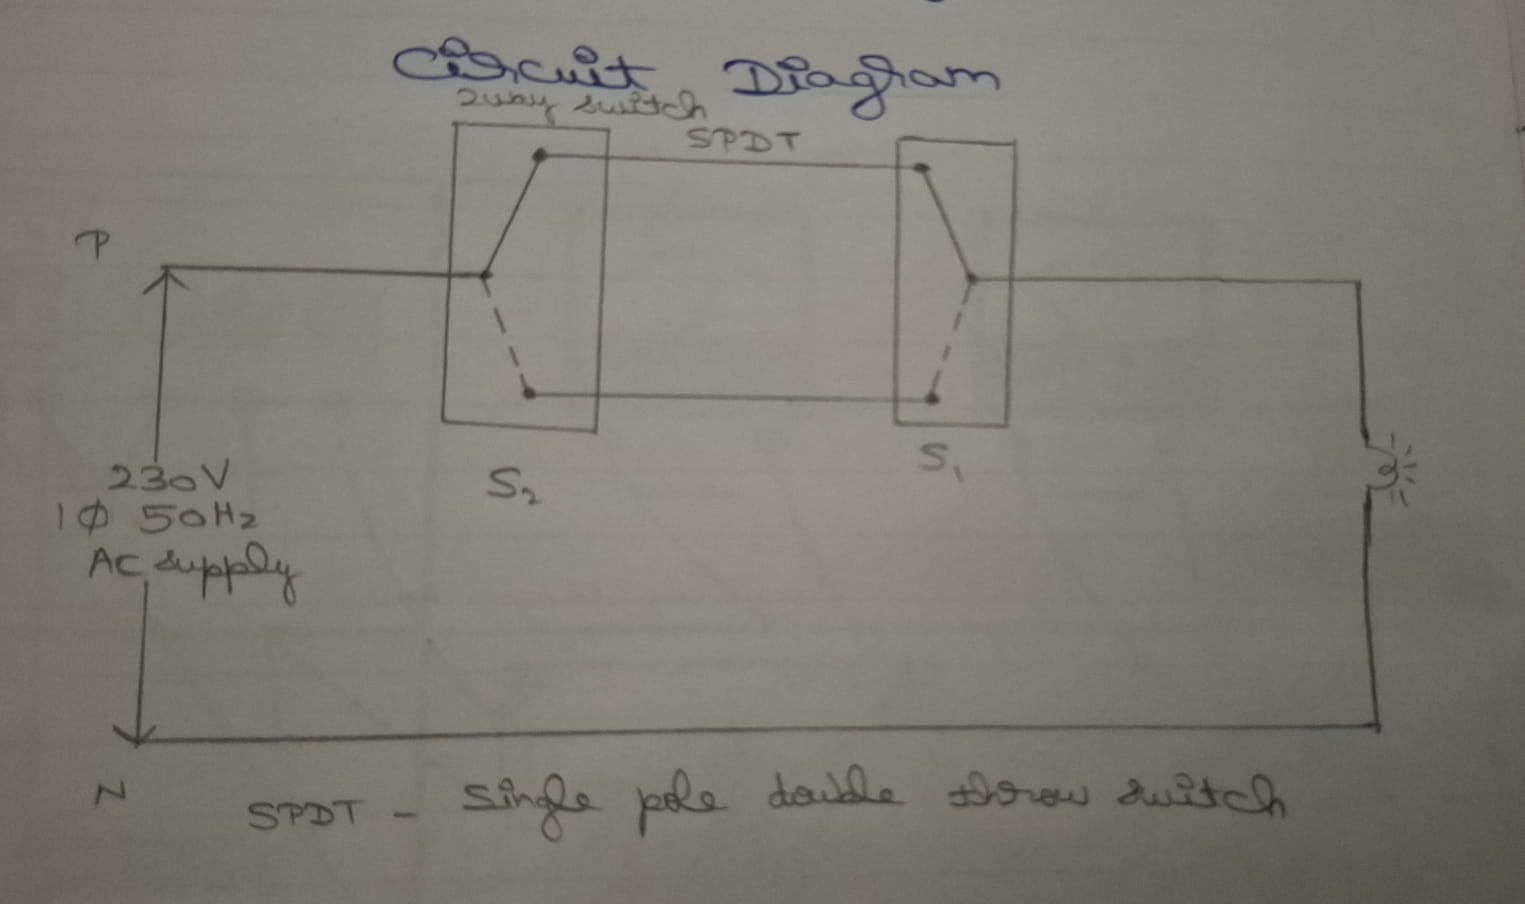 Circuit Diagram
2way switch
SPDT
P
230V
1φ 50Hz
AC supply
S₂
S₁
N
SPDT - Single pole double throw switch